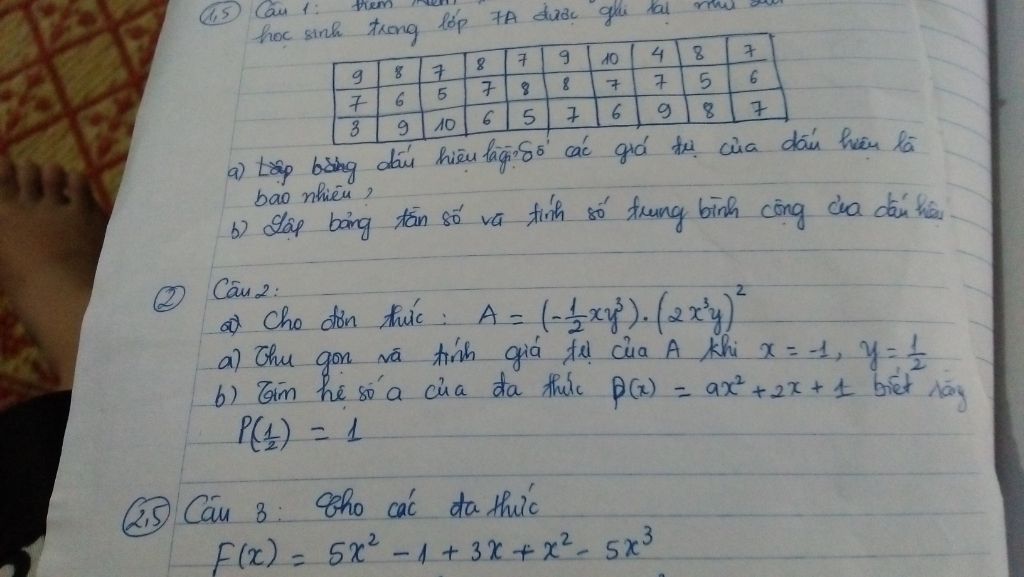 1,5 Câu 1:
học sinh trong lớp 7A được ghi lại như sau
9 8 7 8 7 9 10 4 8 7
7 6 5 7 8 8 7 7 5 6
3 9 10 6 5 7 6 9 8 7
a) Lập bảng dấu hiệu là gì? Số các giá trị của dấu hiệu là
bao nhiêu?
b) Lập bảng tần số và tính số trung bình cộng của dấu hiệu
2 Câu 2:
a) Cho đơn thức: A = (-1/2xy³).(2x³y)²
a) Thu gọn và tính giá trị của A khi x = -1, y = 1/2
b) Tìm hệ số a của đa thức P(x) = ax² + 2x + 1 biết rằng
P(1/2) = 1
2,5 Câu 3: Cho các đa thức
F(x) = 5x² - 1 + 3x + x² - 5x³